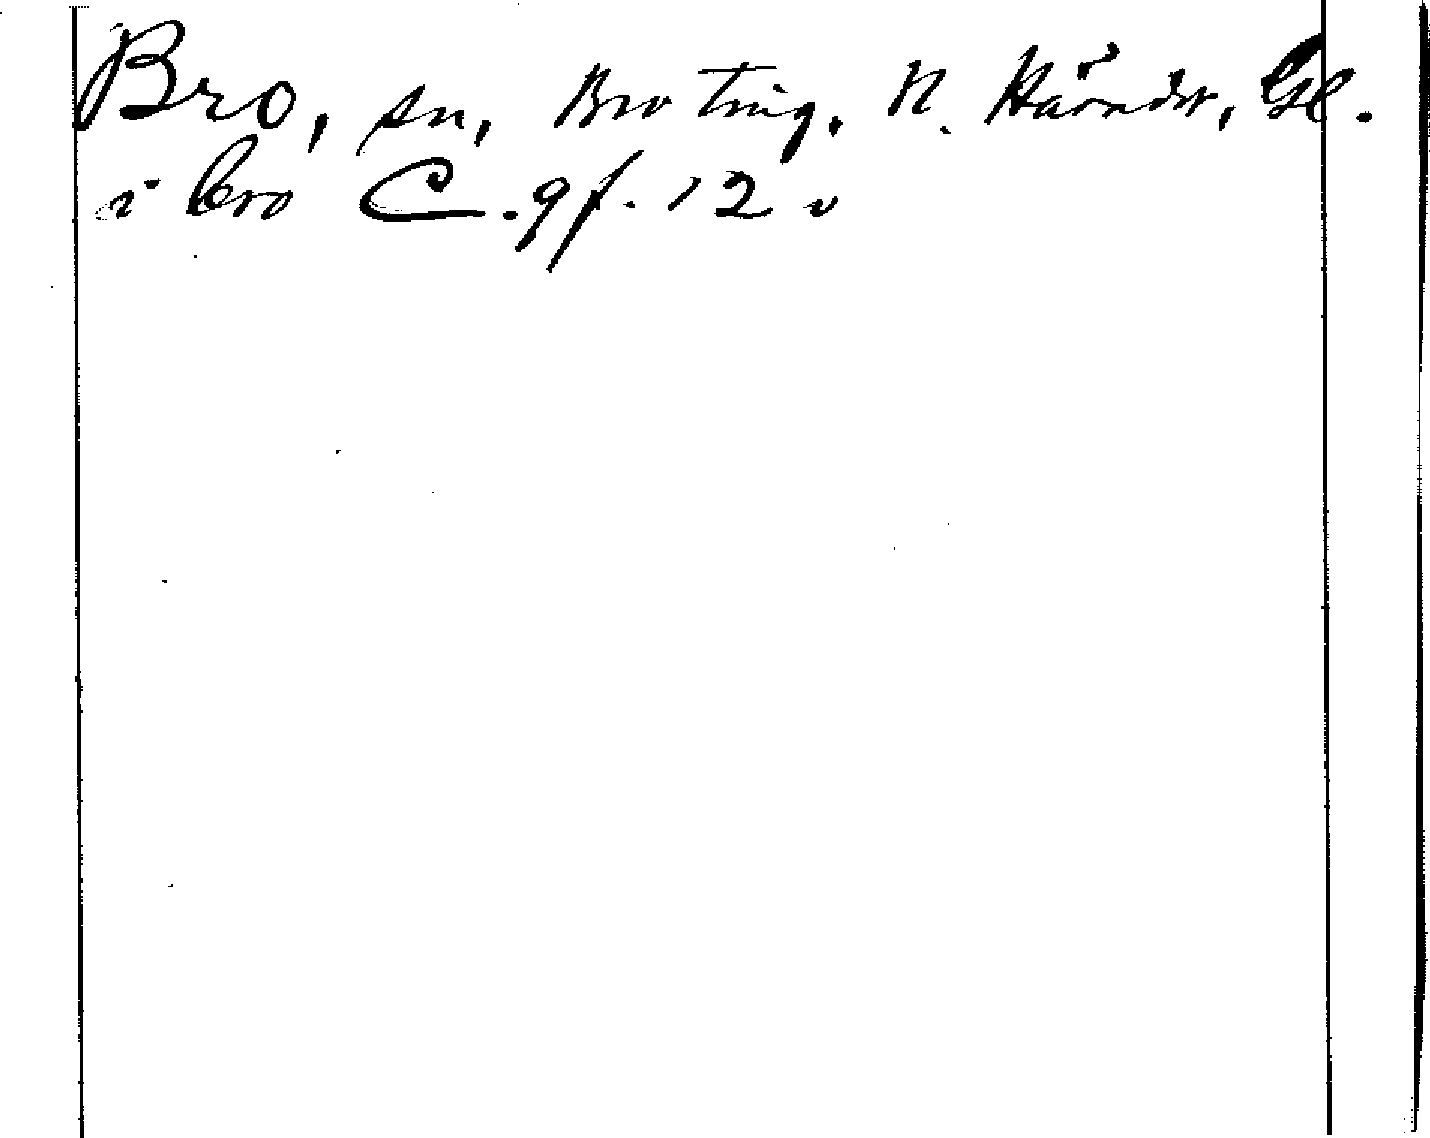 Bro, sn, Bro ting, N. Häradet, Gl.
i bro C. 9 f. 12 v